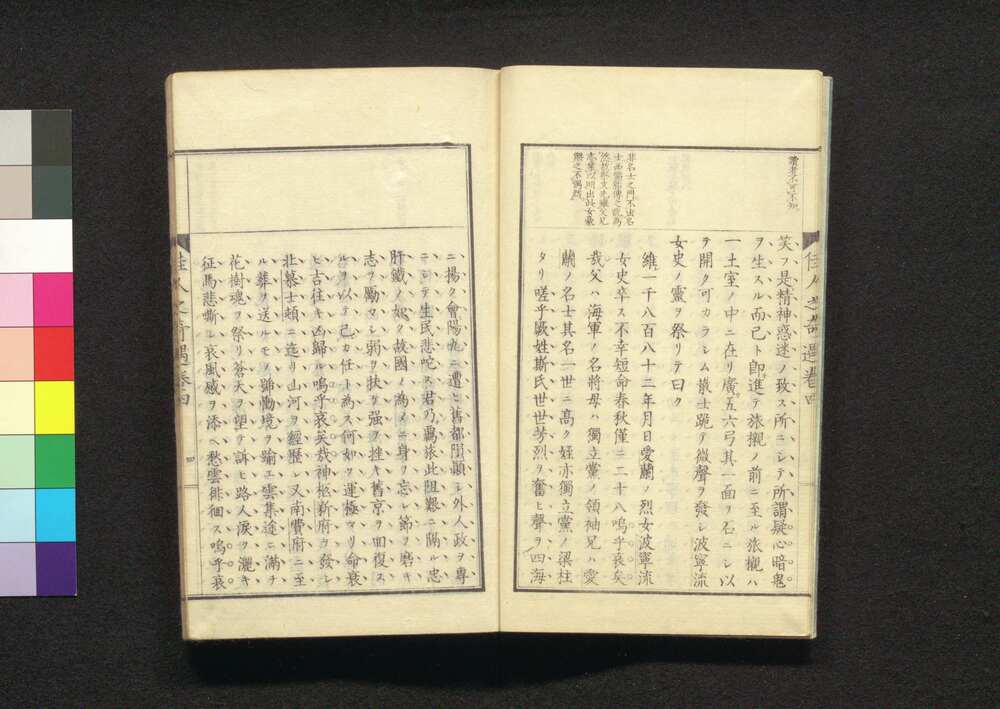 讀者不可不知
笑フ是精神惑迷ノ致ス所ニシテ所謂疑心暗鬼
ヲ生スル而已ト卽進テ旅櫬ノ前ニ至ル旅櫬ハ
一土室ノ中ニ在リ廣五六弓其一面ヲ石ニシ以
テ開ク可カラシム散士跪テ微聲ヲ發レ波寧流
女史ノ靈ヲ祭リテ曰ク
維一千八百八十二年月日愛蘭ノ烈女波寧流
女史卒ス不幸短命春秋僅ニ二十八嗚乎哀矣
我父ハ海軍ノ名將母ハ獨立黨ノ領袖兄ハ愛
蘭ノ名士其名一世ニ高ク姪亦獨立黨ノ梁柱
タリ嗟乎厥姓斯氏世世芳烈ヲ奮ヒ聲ヲ四海
非名士之門不出名
佳人之奇遇卷四
ニ揚ク會陽九ニ遭ヒ舊都闃顚シ外人政ヲ專
ニシテ生民悲咤ス君乃羈旅此阻艱ニ隔ル忠
肝鐵ノ如ク故國ノ爲メニ身ヲ忘レ節ヲ磨キ
志ヲ勵マシ弱ヲ扶ケ强ヲ挫キ舊京ヲ回復ス
ルヲ以テ己カ任ト爲ス何如ゾ運極マリ命衰
ヒ古往キ凶歸ル嗚乎哀矣哉神柩新府ヲ發シ
北慕士頰ニ迄リ山河ヲ經歷シ又南費府ニ至
ル葬ヲ送ルモノ踊慟境ヲ踰エ雲集途ニ滿チ
花樹魂ヲ祭リ蒼天ヲ望ヲ訴ヒ路人淚ヲ灑キ
征馬悲嘶シ哀風感ヲ添ヘ愁雲徘徊ス嗚乎哀
佳人之奇遇卷四
四